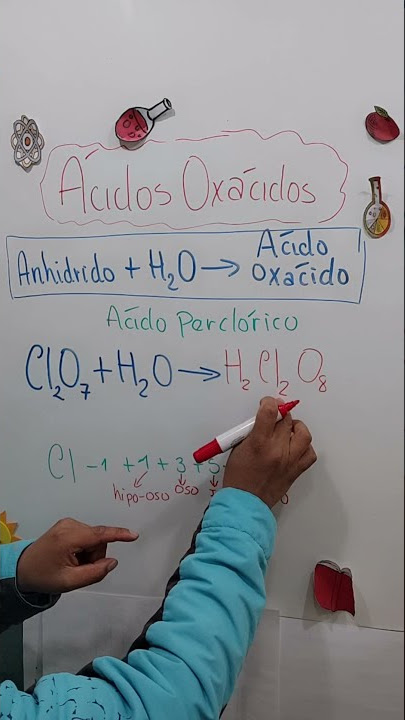 Ácidos Oxácidos
Anhidrido + H₂O → Ácido Oxácido
Ácido Perclórico
Cl₂O₇ + H₂O → H₂Cl₂O₈
Cl -1 +1 +3 +5
hipo-oso oso